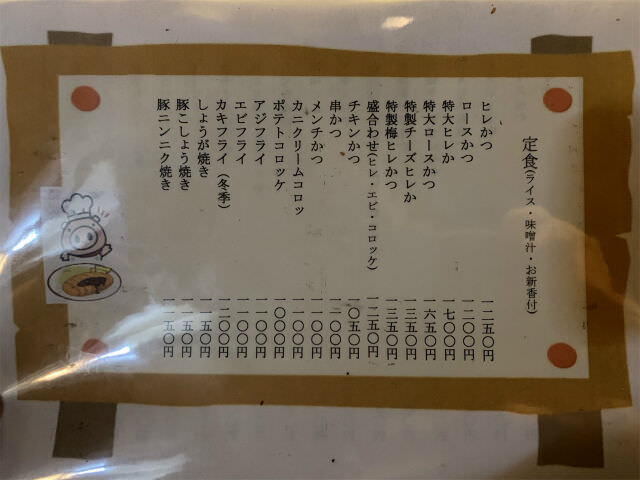 定食(ライス・味噌汁・お新香付)
ヒレかつ 一二五〇円
ロースかつ 一二〇〇円
特大ヒレか 一七〇〇円
特大ロースかつ 一六五〇円
特製チーズヒレか 一三五〇円
特製梅ヒレかつ 一三五〇円
盛合わせ(ヒレ・エビ・コロッケ) 一二五〇円
チキンかつ 一〇五〇円
串かつ 一一〇〇円
メンチかつ 一一〇〇円
カニクリームコロッ 一一〇〇円
ポテトコロッケ 一〇〇〇円
アジフライ 一一〇〇円
エビフライ 一一〇〇円
カキフライ(冬季) 一二〇〇円
しょうが焼き 一一五〇円
豚こしょう焼き 一一五〇円
豚ニンニク焼き 一一五〇円